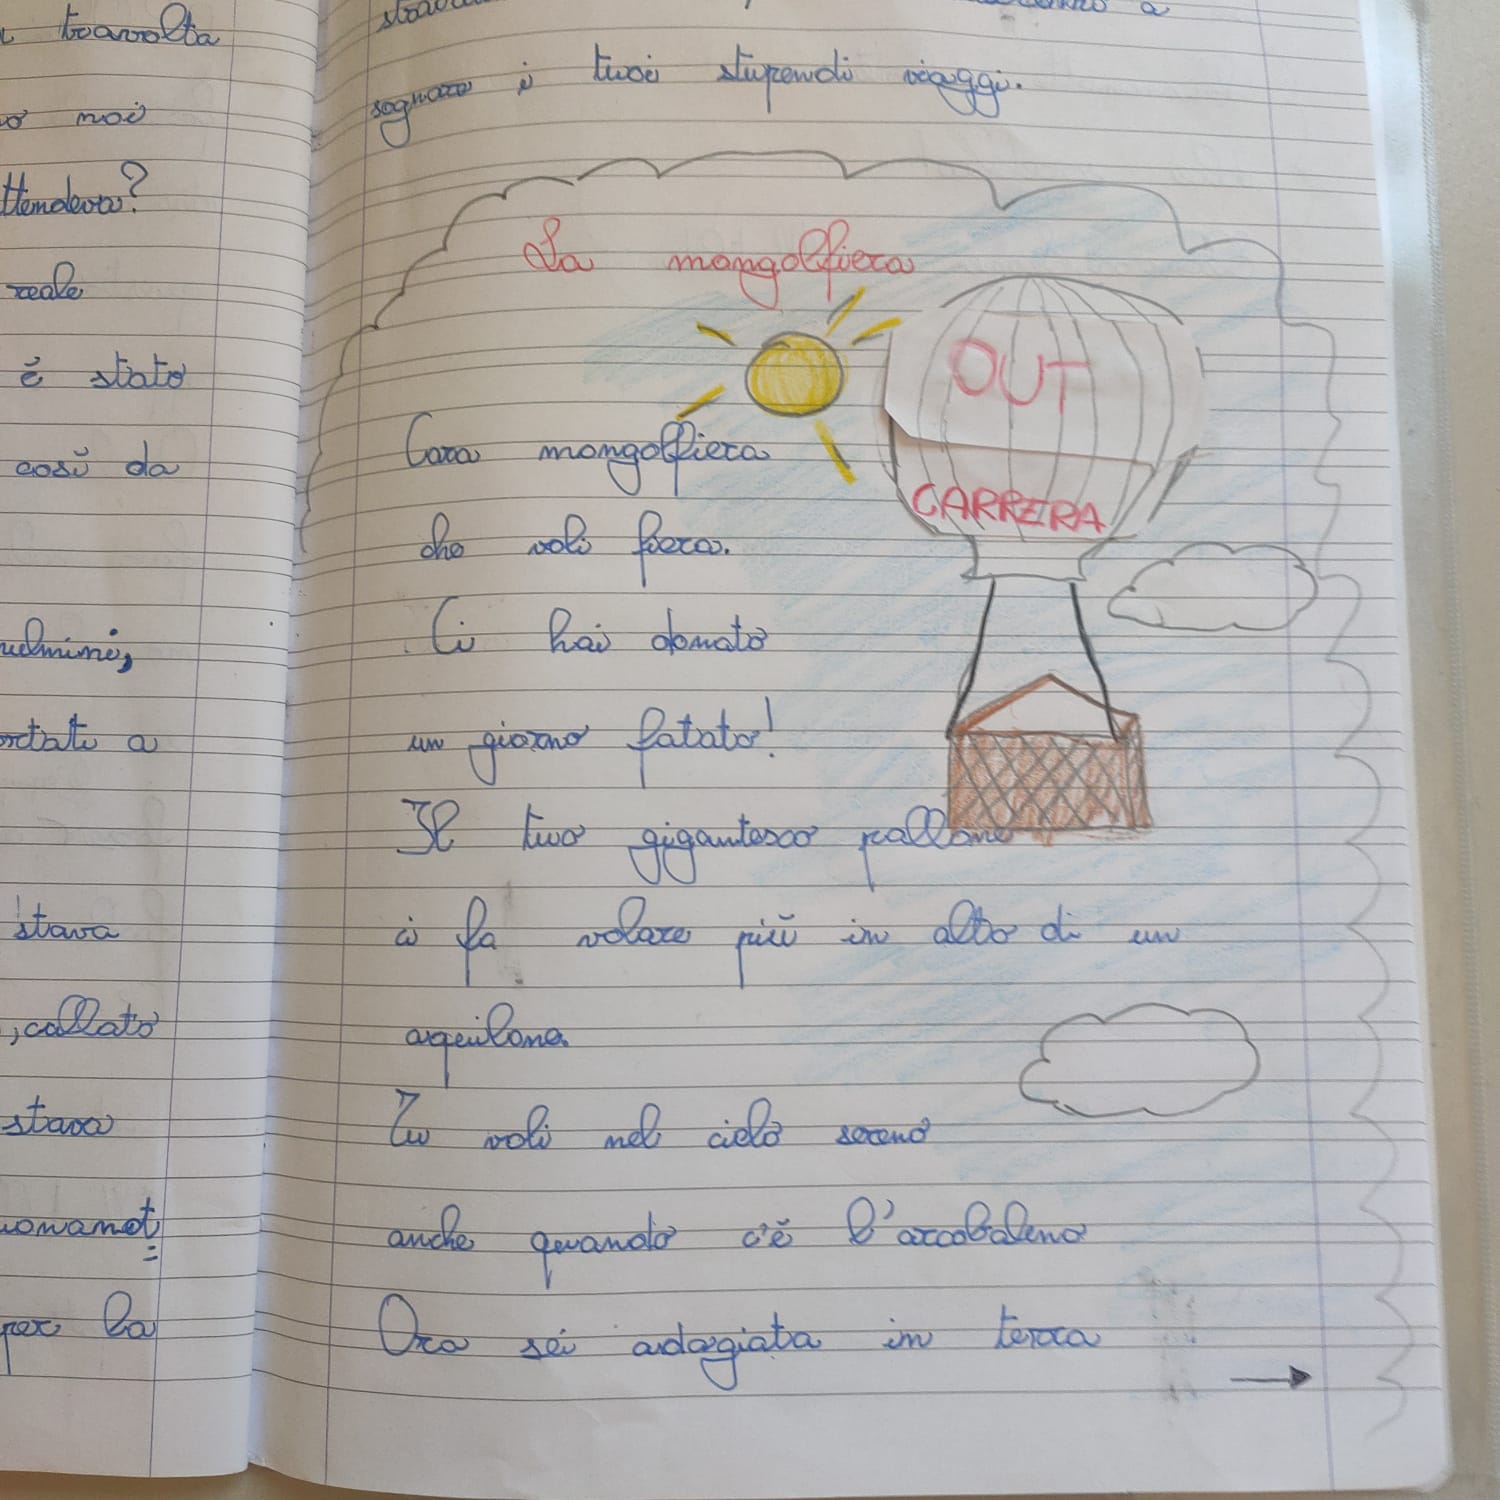 travolta
noi
ttendeva?
reale
è stato
così da
ulmini,
ortati a
stava
, collato
stava
per la
sognare i tuoi stupendi viaggi.
La mongolfiera
OUT
CARRERA
Cara mongolfiera
che voli fiera.
Ci hai donato
un giorno fatato!
Il tuo gigantesco pallone
ci fa volare più in alto di un
aquilone.
Tu voli nel cielo sereno
anche quando c'è l'arcobaleno
Ora sei adagiata in terra